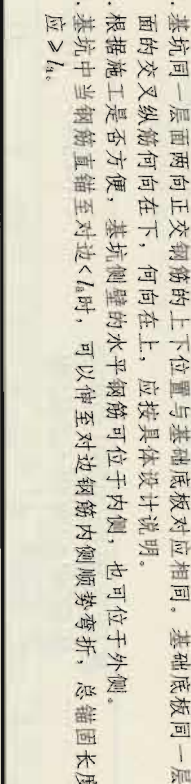 . 基坑同一层面两向正交钢筋的上下位置与基础底板对应相同。基础底板同一层
面的交叉纵筋何向在下，何向在上，应按具体设计说明。
. 根据施工是否方便，基坑侧壁的水平钢筋可位于内侧，也可位于外侧。
. 基坑中当钢筋直锚至对边<la时，可以伸至对边钢筋内侧顺势弯折，总锚固长度
应≥la。